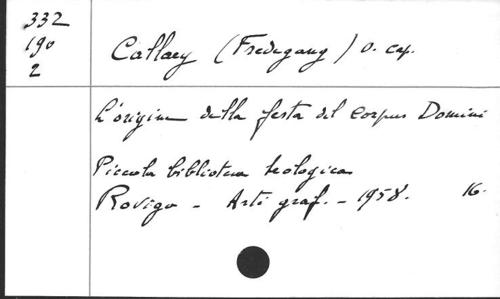 332
190
2
Callaey (Fredegang) o. cap.
L'origine della festa del Corpus Domini
Piccola biblioteca teologica
Rovigo - Arti graf. - 1958. 16.